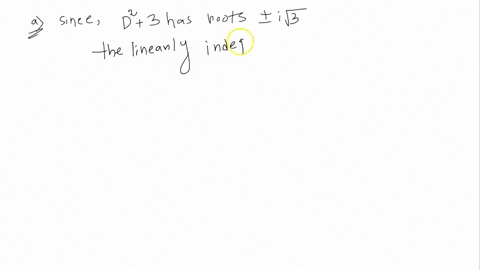 a) since, D²+3 has roots ± i√3
the linearly indep